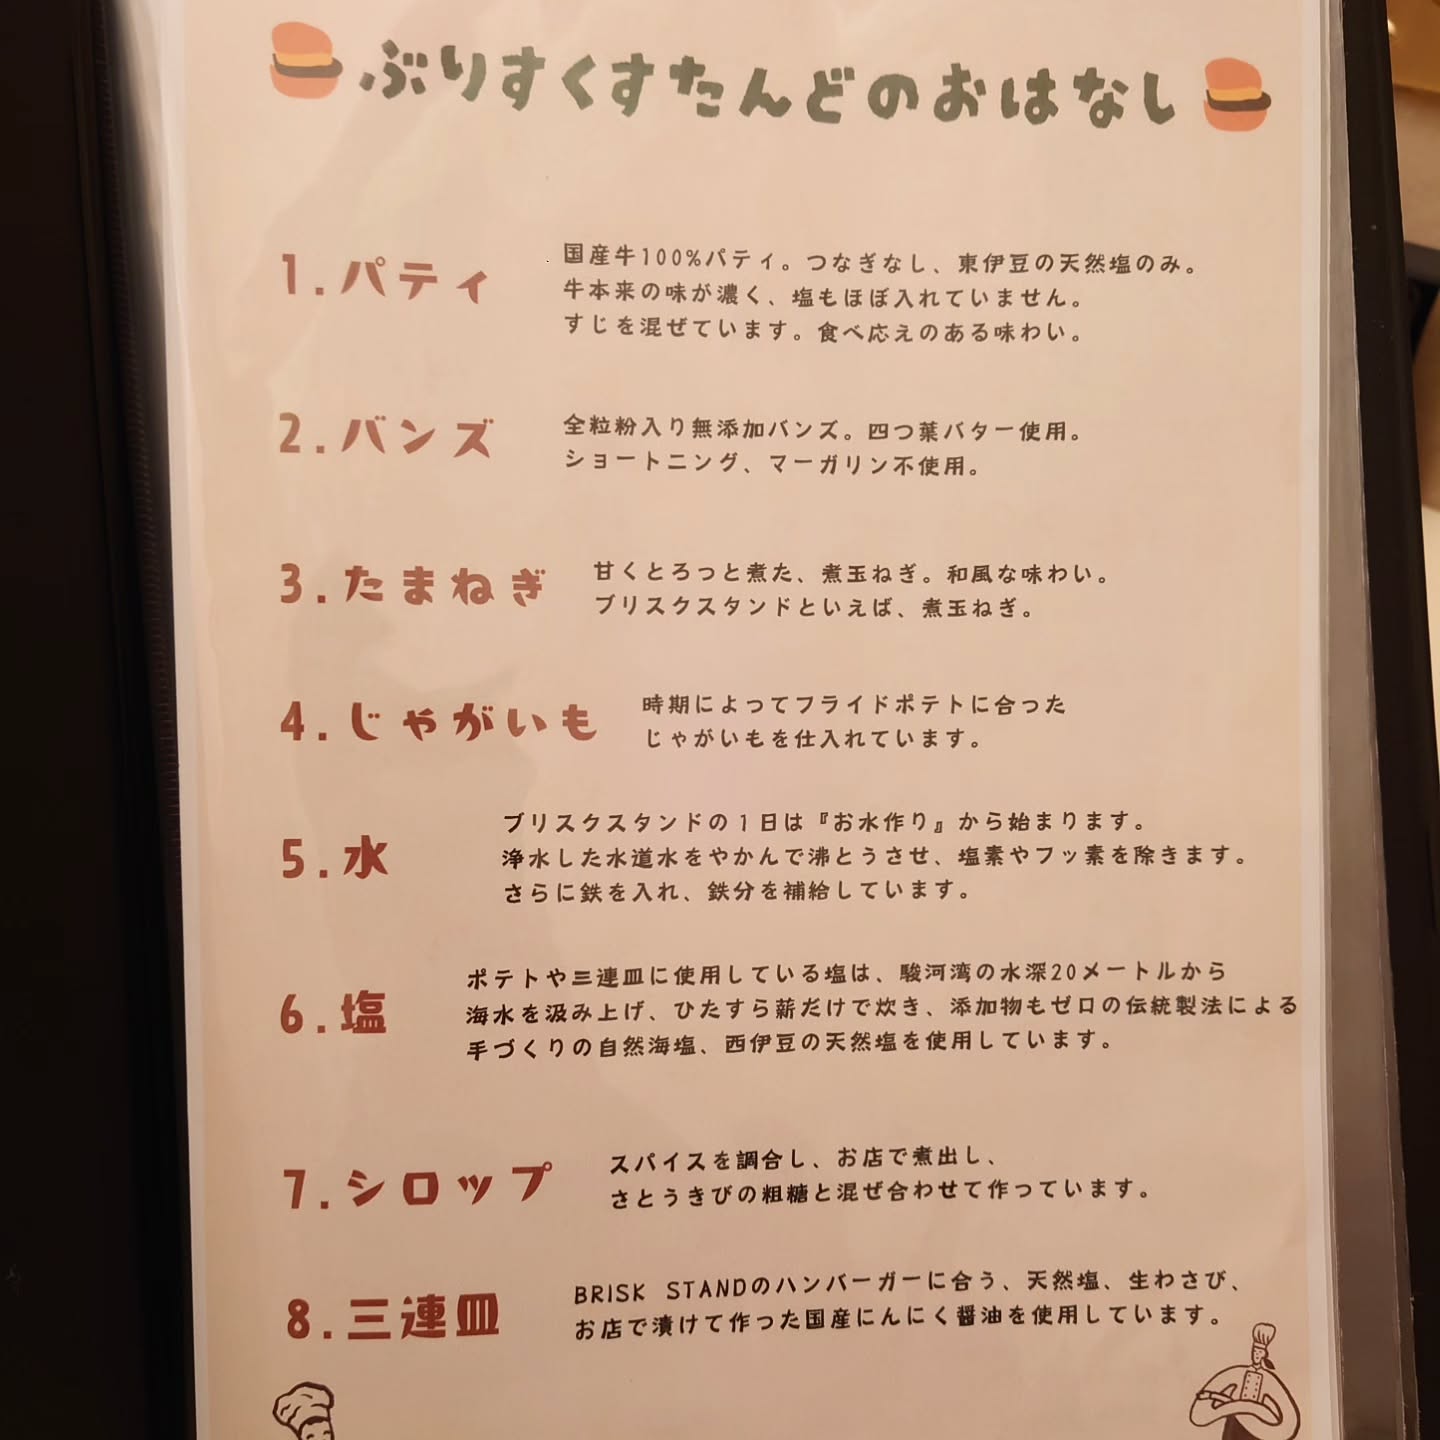 ぶりすくすたんどのおはなし
1.パティ
国産牛100%パティ。つなぎなし、東伊豆の天然塩のみ。
牛本来の味が濃く、塩もほぼ入れていません。
すじを混ぜています。食べ応えのある味わい。
2.バンズ
全粒粉入り無添加バンズ。四つ葉バター使用。
ショートニング、マーガリン不使用。
3.たまねぎ
甘くとろっと煮た、煮玉ねぎ。和風な味わい。
ブリスクスタンドといえば、煮玉ねぎ。
4.じゃがいも
時期によってフライドポテトに合った
じゃがいもを仕入れています。
5.水
ブリスクスタンドの1日は『お水作り』から始まります。
浄水した水道水をやかんで沸とうさせ、塩素やフッ素を除きます。
さらに鉄を入れ、鉄分を補給しています。
6.塩
ポテトや三連皿に使用している塩は、駿河湾の水深20メートルから
海水を汲み上げ、ひたすら薪だけで炊き、添加物もゼロの伝統製法による
手づくりの自然海塩、西伊豆の天然塩を使用しています。
7.シロップ
スパイスを調合し、お店で煮出し、
さとうきびの粗糖と混ぜ合わせて作っています。
8.三連皿
BRISK STANDのハンバーガーに合う、天然塩、生わさび、
お店で漬けて作った国産にんにく醤油を使用しています。